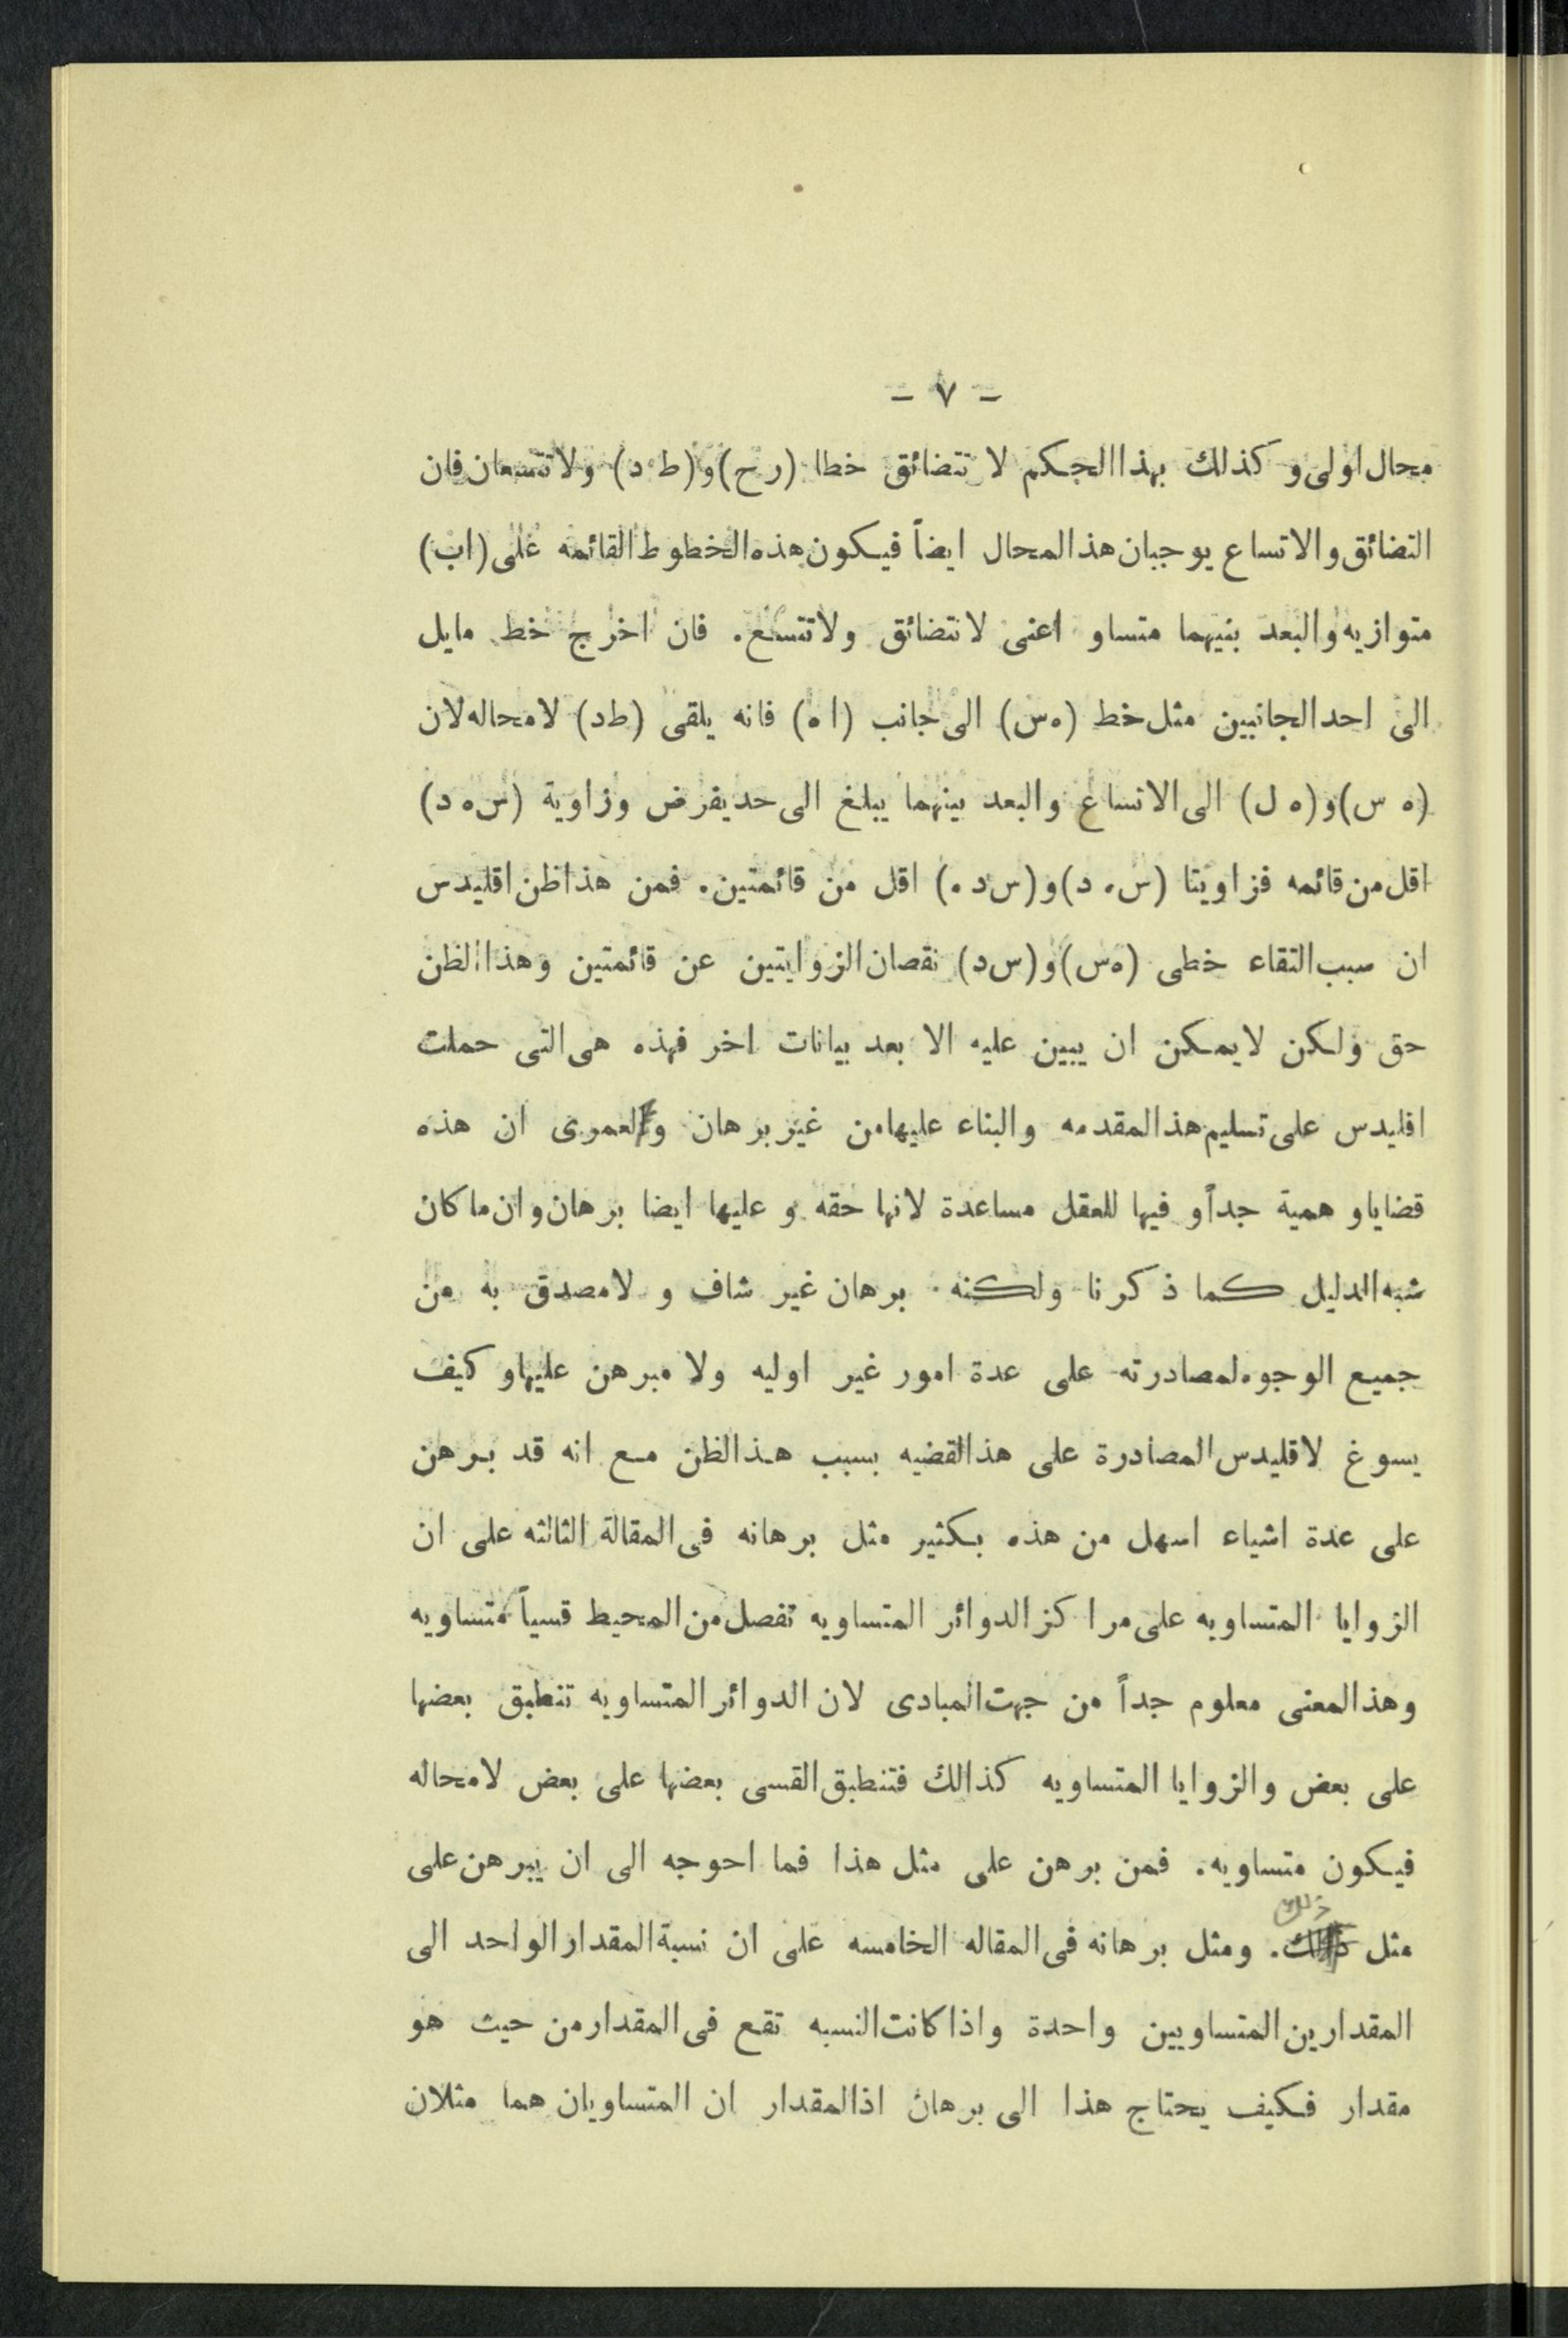 - ٧ -
محال اولى و كذلك بهذا الحكم لا تتضائق خطا (ر ح) و (ط د) ولا تتسعان فان
التضائق والاتساع يوجبان هذ المحال ايضاً فيكون هذه الخطوط القائمه على (اب)
متوازيه والبعد بنيهما متساو اعنى لا تتضائق ولا تتسع. فان اخرج خط مايل
الى احد الجانبين مثل خط (ه س) الى جانب (ا ه) فانه يلقى (ط د) لا محاله لان
(ه س) و (ه ل) الى الاتساع والبعد بينهما يبلغ الى حد يفرض وزاوية (س ه د)
اقل من قائمه فزاويتا (س ه د) و (س د ه) اقل من قائمتين. فمن هذا ظن اقليدس
ان سبب التقاء خطى (ه س) و (س د) نقصان الزوايتين عن قائمتين وهذا الظن
حق ولكن لا يمكن ان يبين عليه الا بعد بيانات اخر فهذه هى التى حملت
اقليدس على تسليم هذ المقدمه والبناء عليها من غير برهان و لعمرى ان هذه
قضايا وهمية جداً و فيها للعقل مساعدة لانها حقه و عليها ايضا برهان وان ما كان
شبه الدليل كما ذكرنا ولكنه برهان غير شاف و لا مصدق به من
جميع الوجوه لمصادرته على عدة امور غير اوليه ولا مبرهن عليها و كيف
يسوغ لاقليدس المصادرة على هذ القضيه بسبب هذ الظن مع انه قد برهن
على عدة اشياء اسهل من هذه بكثير مثل برهانه فى المقالة الثالثه على ان
الزوايا المتساويه على مراكز الدوائر المتساويه تفصل من المحيط قسياً متساويه
وهذ المعنى معلوم جداً من جهت المبادى لان الدوائر المتساويه تنطبق بعضها
على بعض والزوايا المتساويه كذالك فتنطبق القسى بعضها على بعض لا محاله
فيكون متساويه. فمن برهن على مثل هذا فما احوجه الى ان يبرهن على
مثل ذلك. ومثل برهانه فى المقاله الخامسه على ان نسبة المقدار الواحد الى
المقدارين المتساويين واحدة واذا كانت النسبه تقع فى المقدار من حيث هو
مقدار فكيف يحتاج هذا الى برهان اذ المقدار ان المتساويان هما مثلان